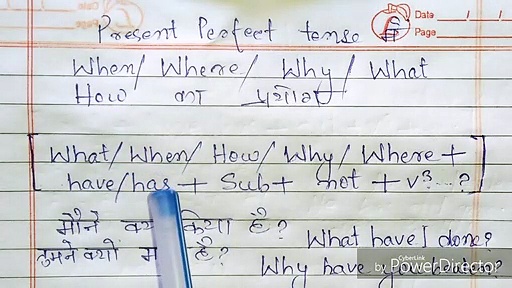 Date
Page
Present Perfect tense में
When/ Where/ Why/ What
How का प्रयोग
[What/ When/ How/ Why/ Where +
have/has + Sub + not + v³...?]
मैंने क्या किया है? What have I done?
तुमने क्यों है? Why have you
by CyberLink PowerDirector